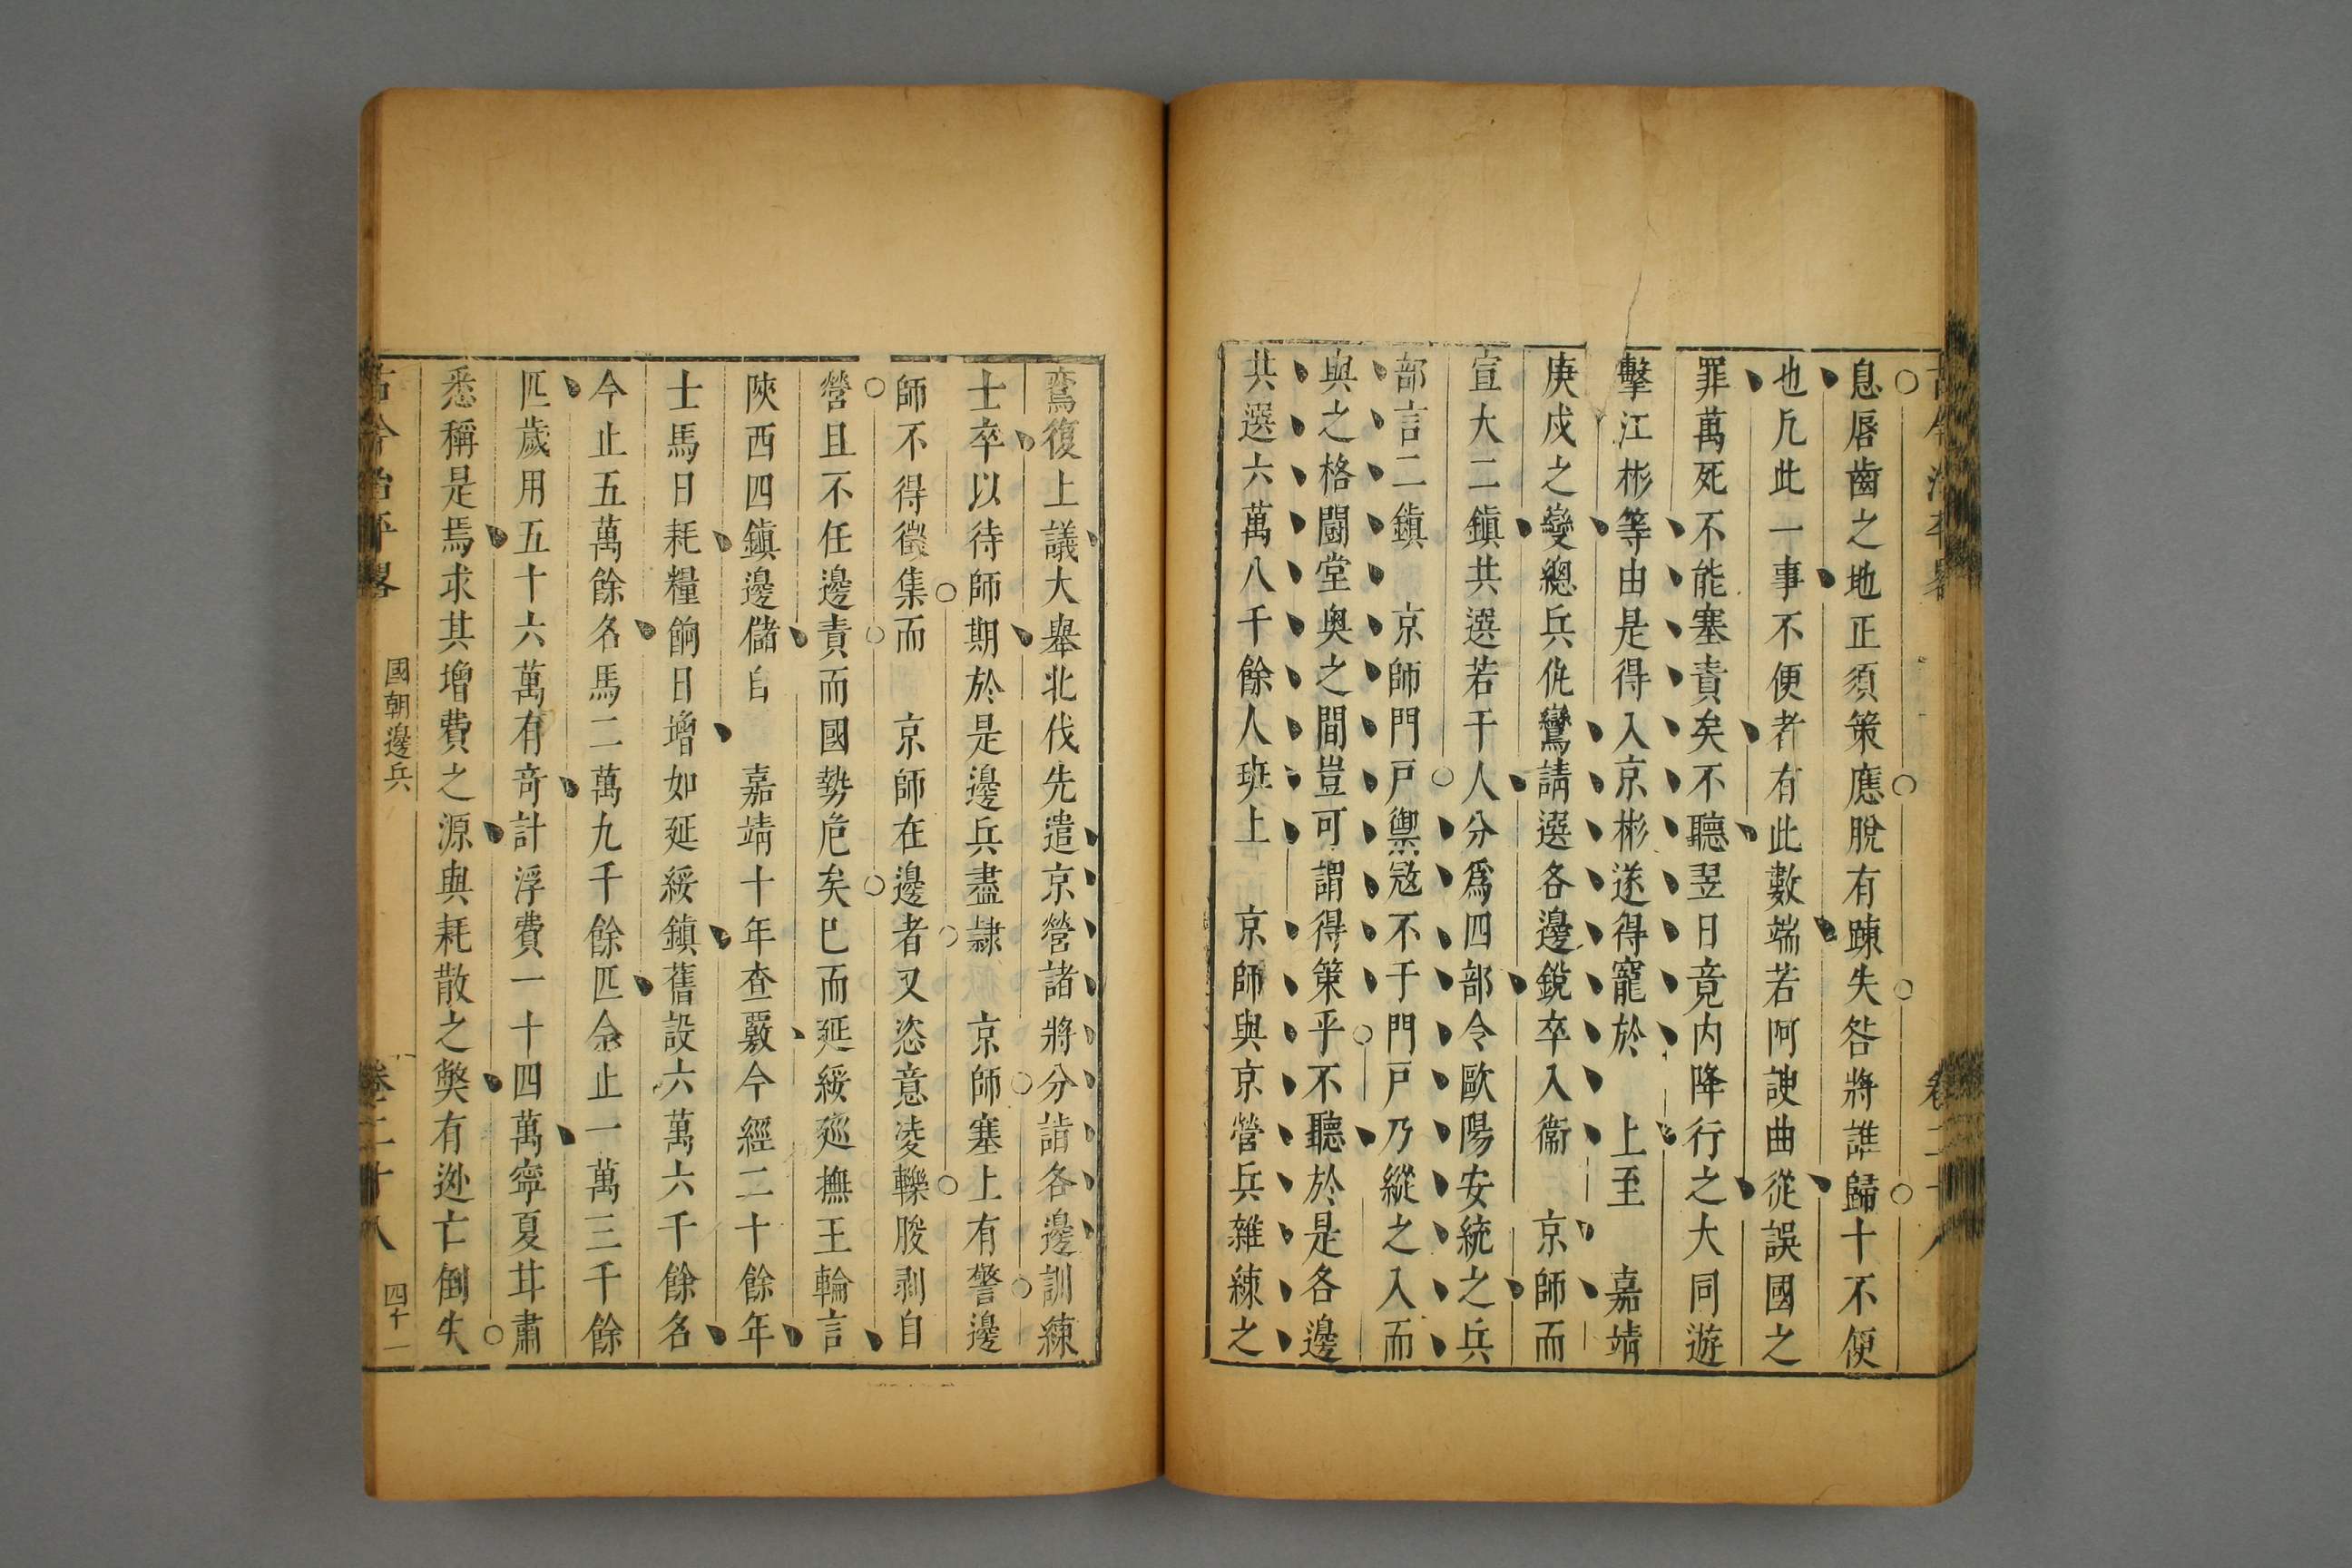 息唇齒之地正須策應脫有踈失咎將誰歸十不便
也凢此一事不便者有此數端若阿諛曲從誤國之
罪萬死不能塞責矣不聽翌日竟内降行之大同遊
擊江彬等由是得入京彬遂得寵於　上至　嘉靖
庚戍之變總兵仇鸞請選各邊銳卒入衞　京師而
宣大二鎮共選若干人分爲四部令歐陽安統之兵
部言二鎮　京師門戸禦寇不于門戸乃縱之入而
與之格鬪堂奥之間豈可謂得策乎不聽於是各邊
共選六萬八千餘人班上　京師與京營兵雜練之
鸞復上議大舉北伐先遣京營諸將分詣各邊訓練
士卒以待師期於是邊兵盡隷　京師塞上有警邊
師不得徵集而　京師在邊者又恣意凌轢朘剥自
營且不任邊責而國勢危矣已而延綏廵撫王輪言
陜西四鎮邊儲自　嘉靖十年查覈今經二十餘年
士馬日耗糧餉日增如延綏鎮舊設六萬六千餘名
今止五萬餘名馬二萬九千餘匹今止一萬三千餘
匹歲用五十六萬有竒計浮費一十四萬寧夏甘肅
悉稱是焉求其增費之源與耗散之弊有逃亡倒失
古今治平畧　國朝邊兵　卷二十八　四十一